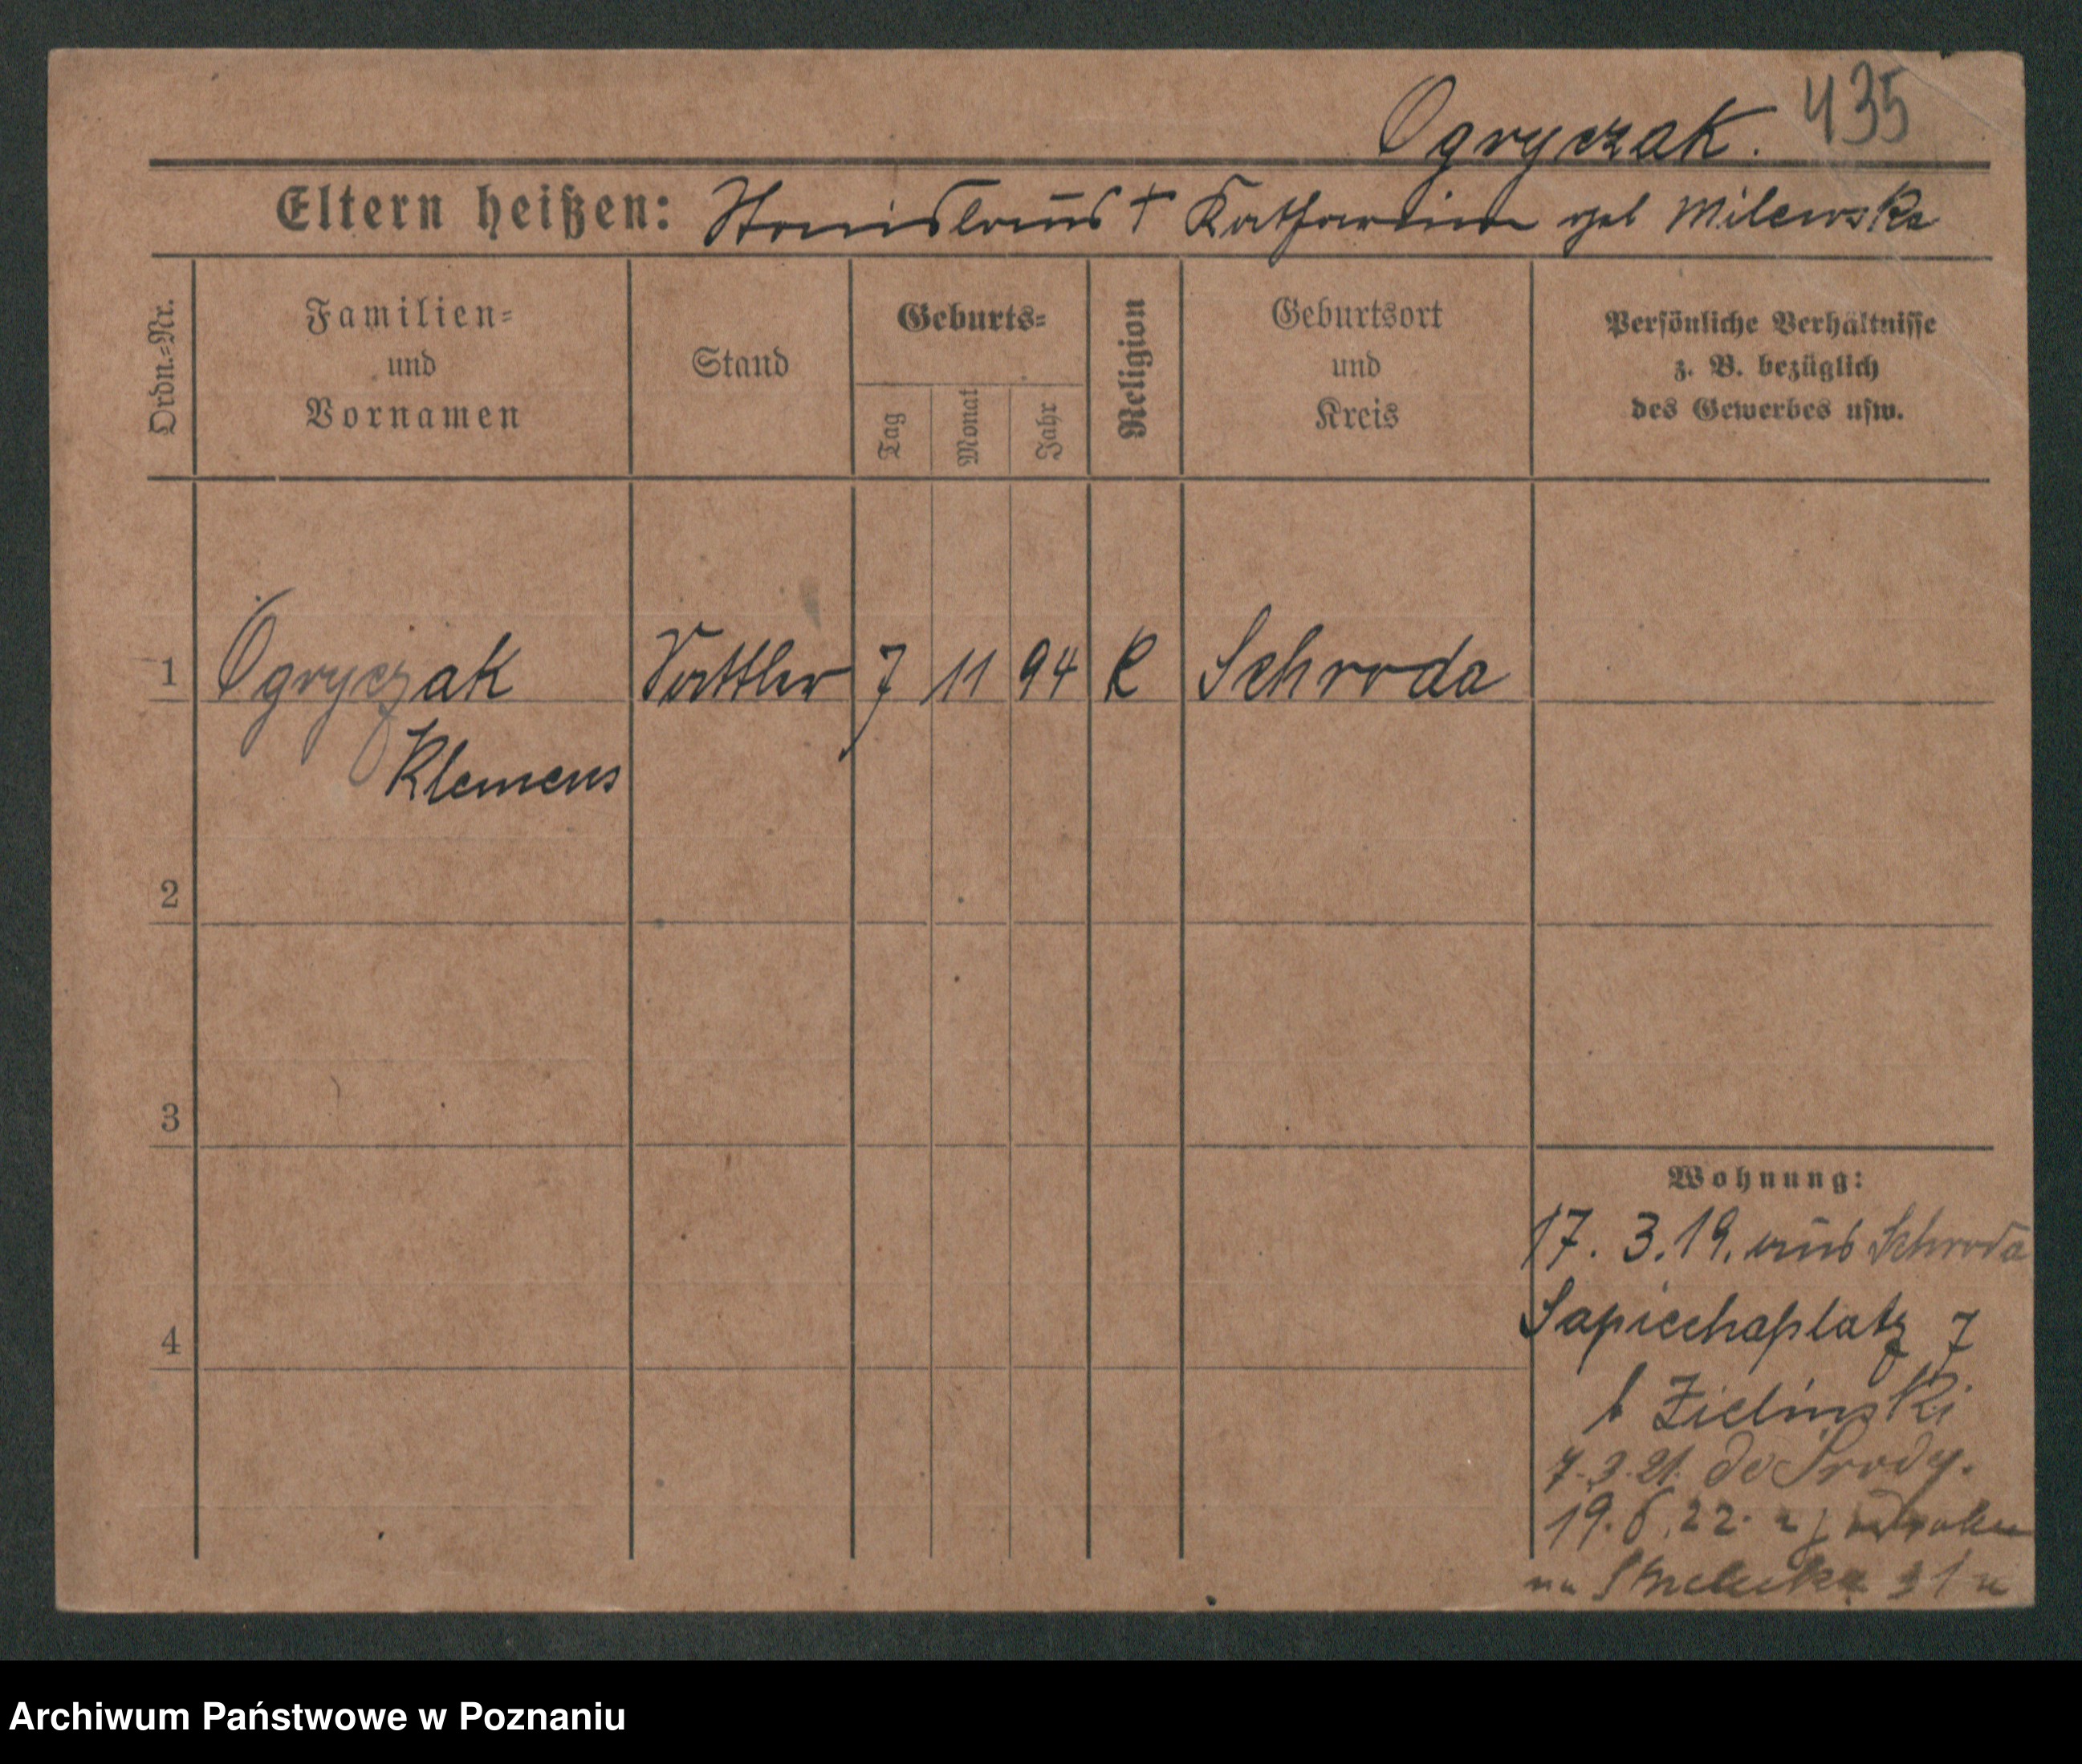 Ogryczak. 435
Eltern heißen: Stanislaus † Katharina geb Milewska
Ordn.=Nr.
Familien=
und
Vornamen
Stand
Geburts=
Tag
Monat
Jahr
Religion
Geburtsort
und
Kreis
Persönliche Verhältnisse
z. B. bezüglich
des Gewerbes usw.
1 Ogryczak Sattler 7 11 94 K Schroda
Klemens
2
3
4
Wohnung:
17. 3. 19. aus Schroda
Sapiechaplatz 7
b Zielinski
7. 3. 21. do Środy.
19. 6. 22. z
na Strzelecka 31
Archiwum Państwowe w Poznaniu